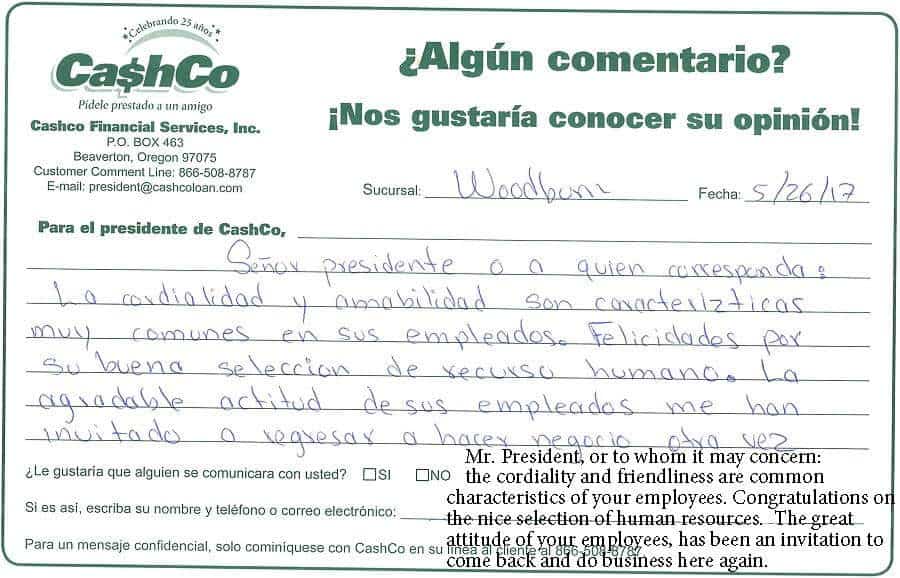 Celebrando 25 años
¿Algún comentario?
Ca$hCo
Pídele prestado a un amigo
¡Nos gustaría conocer su opinión!
Cashco Financial Services, Inc.
P.O. BOX 463
Beaverton, Oregon 97075
Customer Comment Line: 866-508-8787
E-mail: president@cashcoloan.com
Sucursal: Woodburn Fecha: 5/26/17
Para el presidente de CashCo,
Señor presidente o a quien corresponda:
La cordialidad y amabilidad son caracterizticas
muy comunes en sus empleados. Felicidades por
su buena selección de recurso humano. La
agradable actitud de sus empleados me han
invitado a regresar a hacer negocio otra vez
¿Le gustaría que alguien se comunicara con usted? SI NO
Si es así, escriba su nombre y teléfono o correo electrónico:
Para un mensaje confidencial, solo cominíquese con CashCo en su línea al cliente al 866-508-8787
Mr. President, or to whom it may concern:
the cordiality and friendliness are common
characteristics of your employees. Congratulations on
the nice selection of human resources. The great
attitude of your employees, has been an invitation to
come back and do business here again.